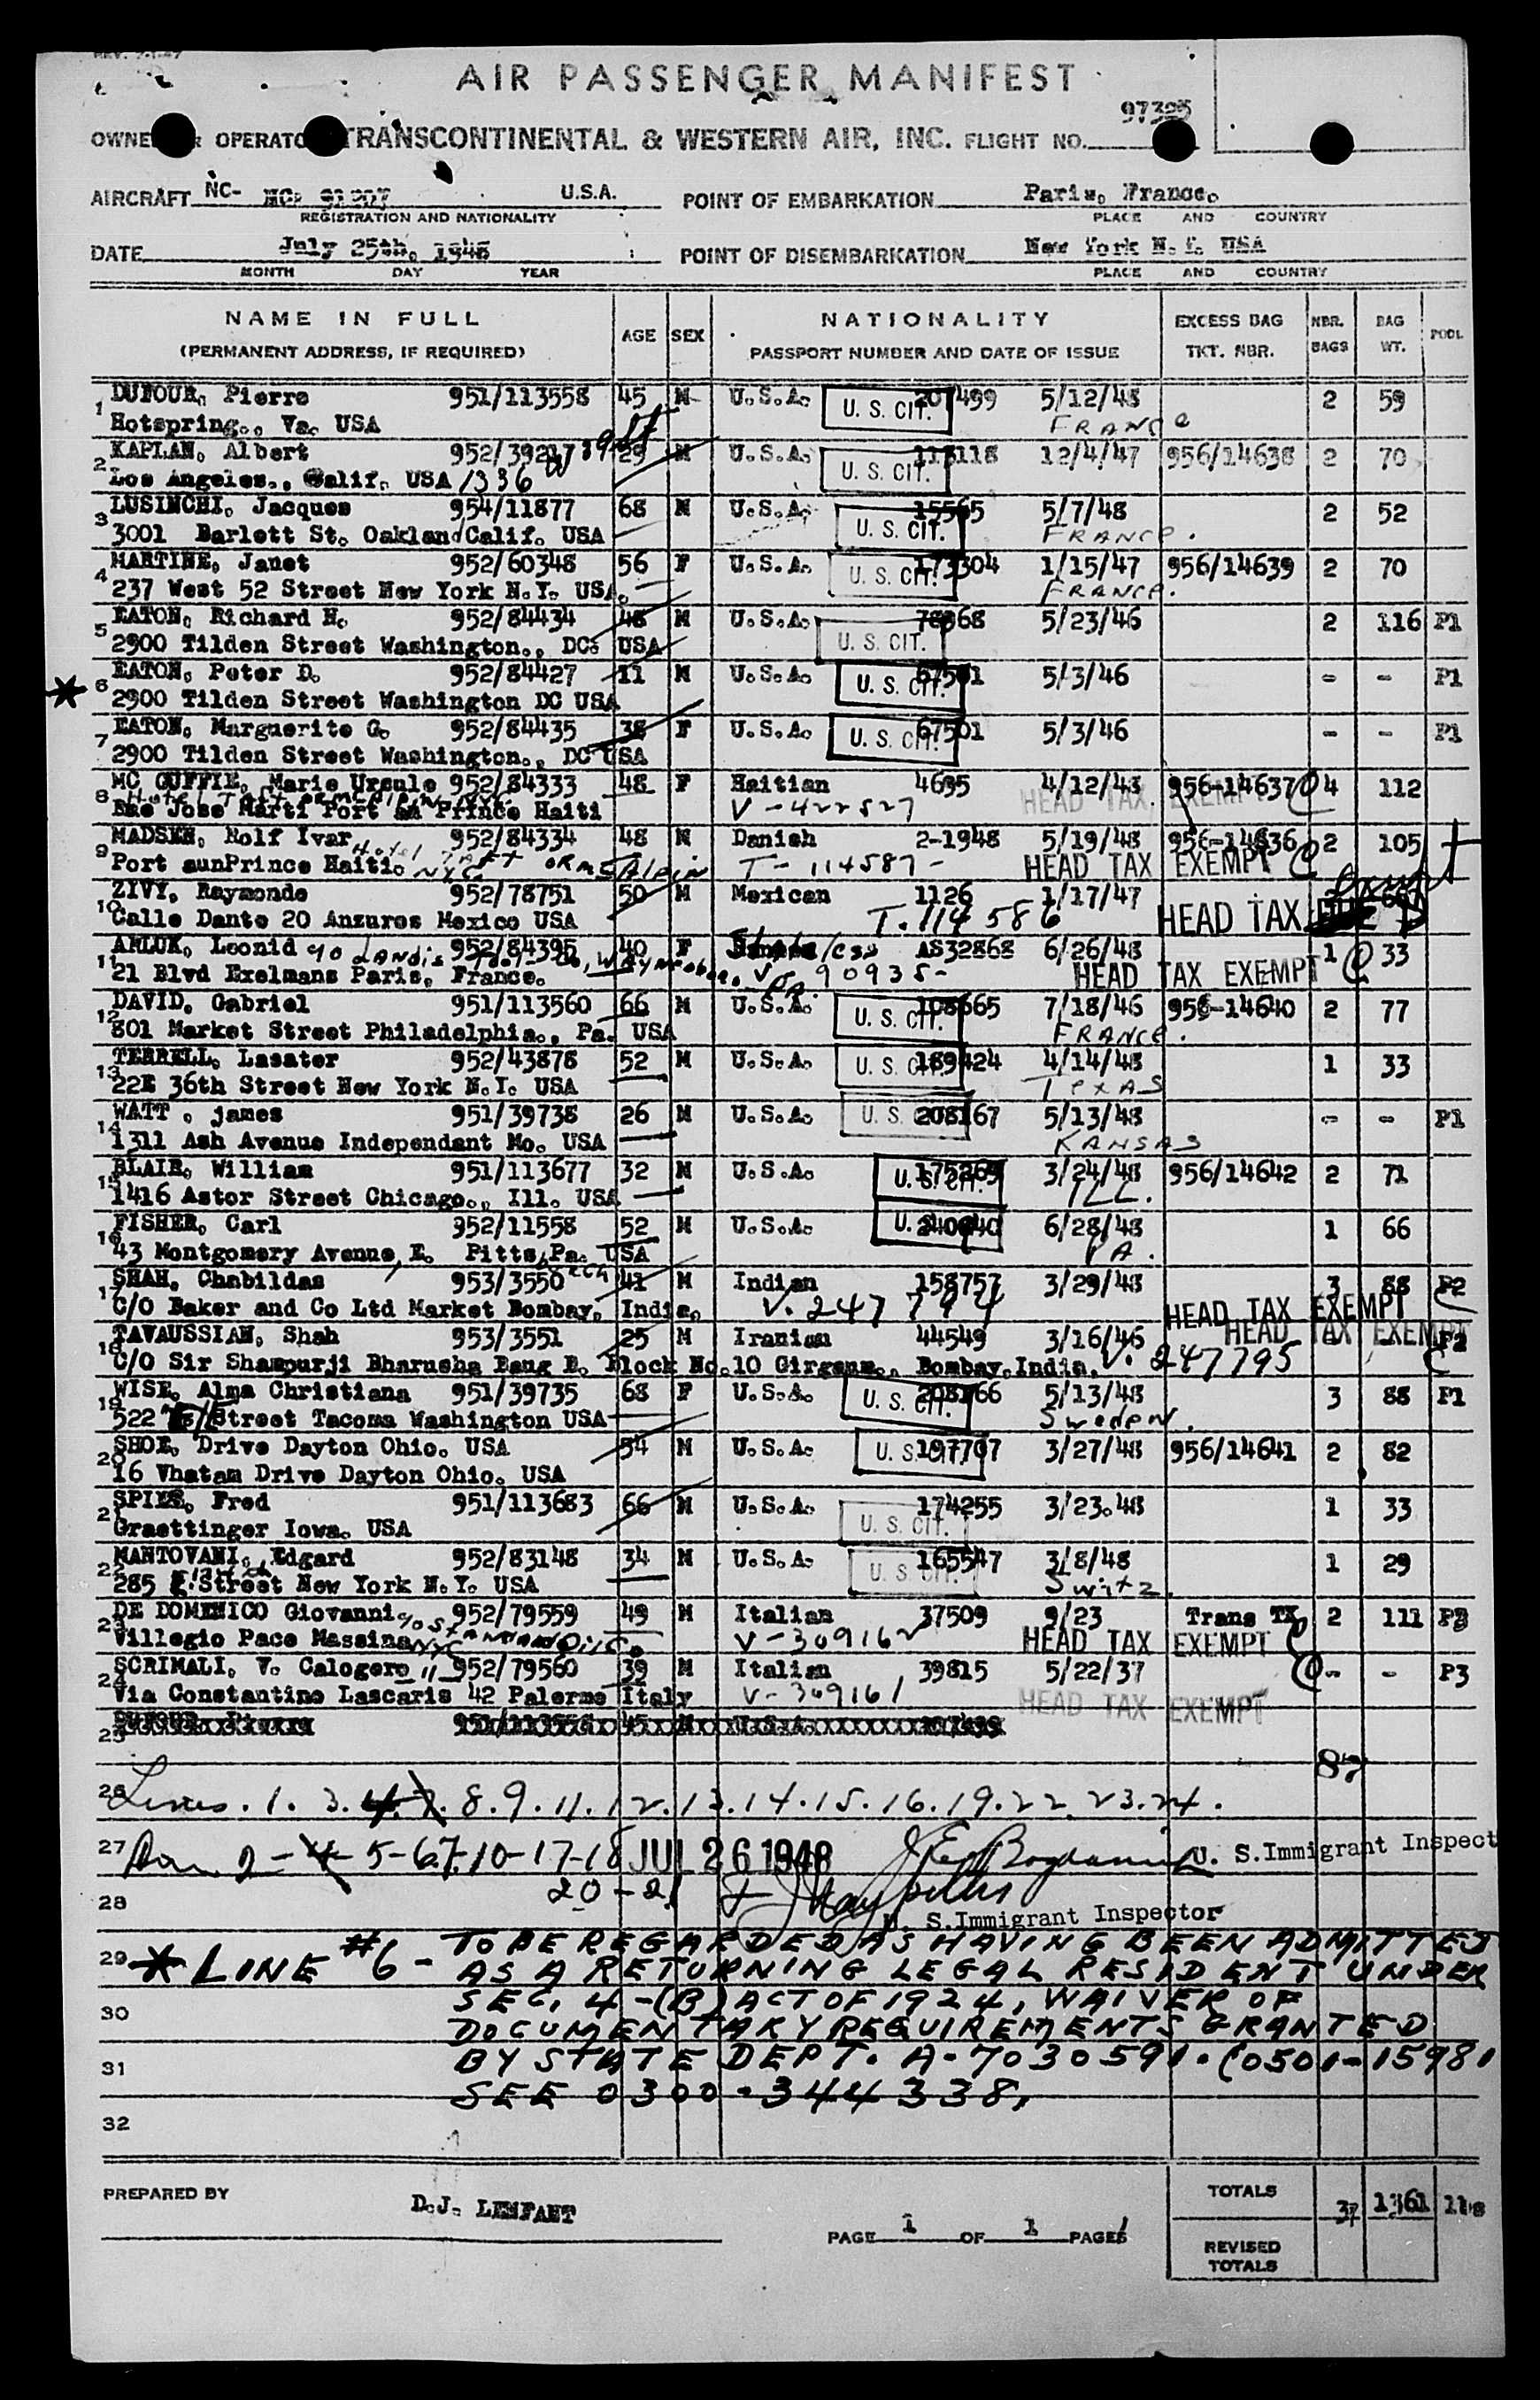 AIR PASSENGER MANIFEST
OWNER OR OPERATOR TRANSCONTINENTAL & WESTERN AIR, INC. FLIGHT NO.
AIRCRAFT NC- U.S.A. POINT OF EMBARKATION Paris, France.
REGISTRATION AND NATIONALITY PLACE AND COUNTRY
DATE July 25th, 1948 POINT OF DISEMBARKATION New York N.Y. USA
MONTH DAY YEAR PLACE AND COUNTRY
NAME IN FULL AGE SEX NATIONALITY EXCESS BAG NBR. BAG POOL
(PERMANENT ADDRESS, IF REQUIRED) PASSPORT NUMBER AND DATE OF ISSUE TKT. NBR. BAGS WT.
1 DUFOUR, Pierre 951/113558 45 M U.S.A. U. S. CIT. 207499 5/12/48 2 59
Hotspring., Va. USA FRANCE
2 KAPLAN, Albert 29 M U.S.A. U. S. CIT. 12/4/47 956/14638 2 70
Los Angeles., Calif. USA 1336
3 LUSINCHI, Jacques 954/11877 68 M U.S.A. U. S. CIT. 15565 5/7/48 2 52
3001 Barlett St. Oakland Calif. USA FRANCE.
4 MARTINE, Janet 952/60348 56 F U.S.A. U. S. CIT. 173304 1/15/47 956/14639 2 70
237 West 52 Street New York N.Y. USA. FRANCE.
5 EATON, Richard H. 952/84434 48 M U.S.A. U. S. CIT. 78368 5/23/46 2 116 P1
2900 Tilden Street Washington., DC. USA
* 6 EATON, Peter D. 952/84427 11 M U.S.A. U. S. CIT. 67501 5/3/46 - - P1
2900 Tilden Street Washington DC USA
7 EATON, Marguerite G. 952/84435 38 F U.S.A. U. S. CIT. 67501 5/3/46 - - P1
2900 Tilden Street Washington., DC USA
8 MC GUFFIE, Marie Ursule 952/84333 48 F Haitian 4695 4/12/48 956-14637 4 112
Rue Jose Marti Port au Prince Haiti V-422527 HEAD TAX EXEMPT
9 MADSEN, Rolf Ivar 952/84334 48 M Danish 2-1948 5/19/48 956-14636 2 105
Port aunPrince Haiti. Hotel TAFT NYC T-114587- HEAD TAX EXEMPT
10 ZIVY, Raymonde 952/78751 50 M Mexican 1126 1/17/47
Calle Dante 20 Anzures Mexico USA T.114586 HEAD TAX
11 ARLUK, Leonid 952/84395 40 F AS32868 6/26/48 1 33
21 Blvd Exelmans Paris, France. V 90935- HEAD TAX EXEMPT
12 DAVID, Gabriel 951/113560 66 M U.S.A. U. S. CIT. 108665 7/18/46 956-14640 2 77
801 Market Street Philadelphia., Pa. USA FRANCE.
13 TERRELL, Lasater 952/43878 52 M U.S.A. U. S. CIT. 189424 4/14/48 1 33
22E 36th Street New York N.Y. USA TexAS
14 WATT , james 951/39738 26 M U.S.A. U. S. 208167 5/13/48 - - P1
1311 Ash Avenue Independant Mo. USA KANSAS
15 BLAIR, William 951/113677 32 M U.S.A. U. S. CIT. 175269 3/24/48 956/14642 2 71
1416 Astor Street Chicago., Ill. USA ILL.
16 FISHER, Carl 952/11558 52 M U.S.A. U. S. 240640 6/28/48 1 66
43 Montgomery Avenue, E. Pitts, Pa. USA PA.
17 SHAH, Chabildas 953/3550 41 M Indian 158757 3/29/48 3 88 P2
C/O Baker and Co Ltd Market Bombay, India, V.247794 HEAD TAX EXEMPT
18 TAVAUSSIAN, Shah 953/3551 25 M Iranian 44549 3/16/46 HEAD TAX EXEMPT P2
C/O Sir Shampurji Bharucha Bang E. Block No.10 Bombay, India. V. 247795
19 WISE, Alma Christiana 951/39735 68 F U.S.A. U. S. CIT. 208166 5/13/48 3 88 P1
522 Street Tacoma Washington USA Sweden.
20 SHOE, Drive Dayton Ohio. USA 54 M U.S.A. U. S. 197707 3/27/48 956/14641 2 82
16 Vhatam Drive Dayton Ohio. USA
21 SPIES, Fred 951/113683 66 M U.S.A. U. S. CIT. 174255 3/23.48 1 33
Graettinger Iowa. USA
22 MANTOVANI, Edgard 952/83148 34 M U.S.A. U. S. CIT. 165547 3/8/48 1 29
285 Street New York N.Y. USA Switz.
23 DE DOMENICO Giovanni 952/79559 49 M Italian 37509 9/23 Trans TX 2 111
Villegio Pace Messina NYC V-309162 HEAD TAX EXEMPT
24 SCRIMALI, V. Calogero 952/79560 39 M Italian 39815 5/22/37 - - P3
Via Constantino Lascaris 42 Palermo Italy V-309161 HEAD TAX EXEMPT
25
26 Lines. 1. 3. 8. 9. 11. 12. 13. 14. 15. 16. 19. 22. 23. 24.
27 5-6-7-10-17-18 JUL 26 1948 U. S.Immigrant Inspect
28 20-21 U. S.Immigrant Inspector
29 * LINE #6 - TO BE REGARDED AS HAVING BEEN ADMITTED
AS A RETURNING LEGAL RESIDENT UNDER
30 SEC. 4-(B) ACT OF 1924, WAIVER OF
DOCUMENTARY REQUIREMENTS GRANTED
31 BY STATE DEPT. A-7030591. (0501-15981
SEE 0300-344338,
32
PREPARED BY D.J. LEMFANT TOTALS 37 1361 11s
PAGE 1 OF 1 PAGES
REVISED
TOTALS